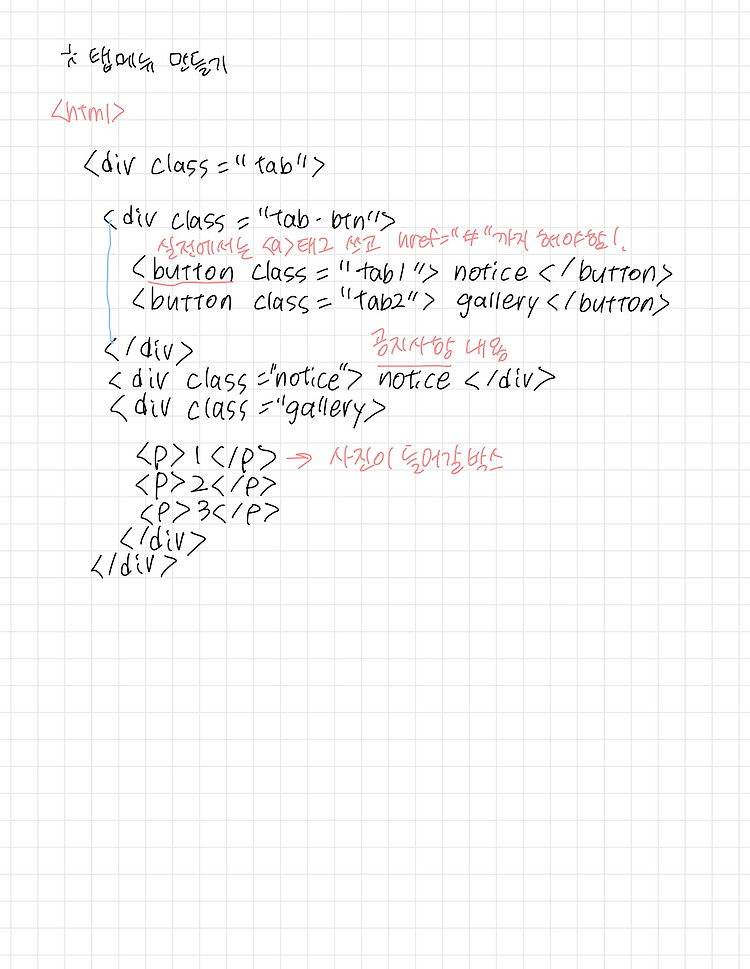 ※ 탭메뉴 만들기
<html>
<div class="tab">
<div class="tab-btn">
실전에서는 <a>태그 쓰고 href="#"까지 해야함!
<button class="tab1"> notice </button>
<button class="tab2"> gallery </button>
</div>
공지사항 내용
<div class="notice"> notice </div>
<div class="gallery>
<p>1</p> → 사진이 들어갈 박스
<p>2</p>
<p>3</p>
</div>
</div>